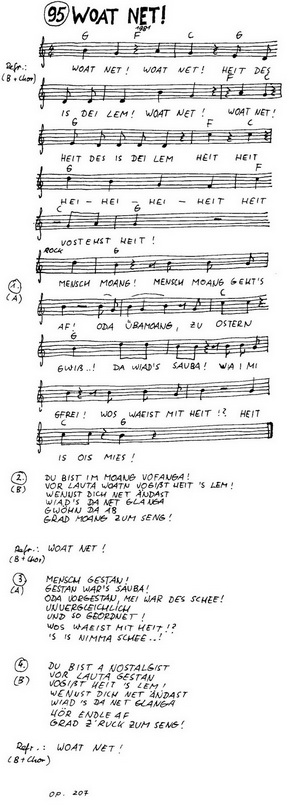 95 WOAT NET!
1981
G F C G
Refr.: WOAT NET! WOAT NET! HEIT DES
(B + Chor)
G F C
IS DEI LEM! WOAT NET! WOAT NET!
G F C
HEIT DES IS DEI LEM HEIT HEIT
G F
HEI - HEI - HEI - HEIT HEIT
C G
VOSTEHST HEIT!
ROCK G
1. MENSCH MOANG! MENSCH MOANG GEHT'S
(A)
C
AF! ODA ÜBAMOANG, ZU OSTERN
G
GWIß..! DA WIAD'S SAUBA! WIA I MI
GFREI! WOS WAEIST MIT HEIT!? HEIT
C G
IS OIS MIES!
2. DU BIST IM MOANG VOFANGA!
(B) VOR LAUTA WOATN VOGIßT HEIT 'S LEM!
WENNST DICH NET ÄNDAST
WIAD'S DA NET GLANGA
GWÖHN DA AB
GRAD MOANG ZUM SENG!
Refr.: WOAT NET!
(B + Chor)
3. MENSCH GESTAN!
(A) GESTAN WAR'S SAUBA!
ODA VORGESTAN, MEI WAR DES SCHEE!
UNVERGLEICHLICH
UND SO GEORDNET!
WOS WAEIST MIT HEIT!?
'S IS NIMMA SCHEE..!
4. DU BIST A NOSTALGIST
(B) VOR LAUTA GESTAN
VOGIßT HEIT 'S LEM!
WENNST DICH NET ÄNDAST
WIAD 'S DA NET GLANGA
HÖR ENDLE AF
GRAD Z'RUCK ZUM SENG!
Refr.: WOAT NET!
(B + Chor)
OP. 207